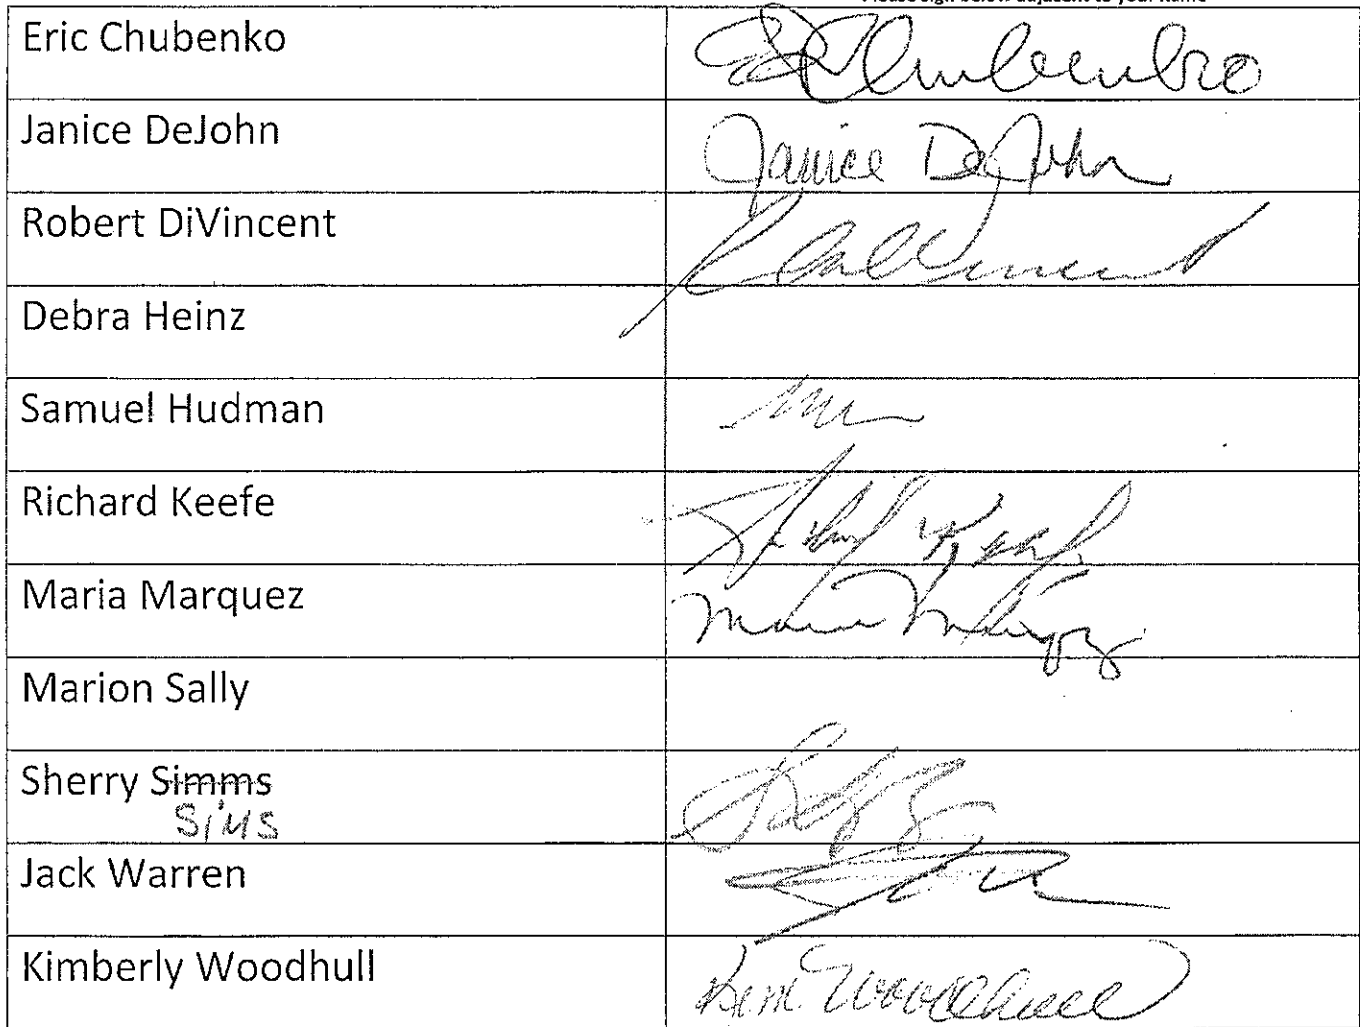 Please sign below adjacent to your name
Eric Chubenko
Janice DeJohn Janice DeJohn
Robert DiVincent
Debra Heinz
Samuel Hudman
Richard Keefe
Maria Marquez
Marion Sally
Sherry Simms
Sims
Jack Warren
Kimberly Woodhull Kim Woodhull